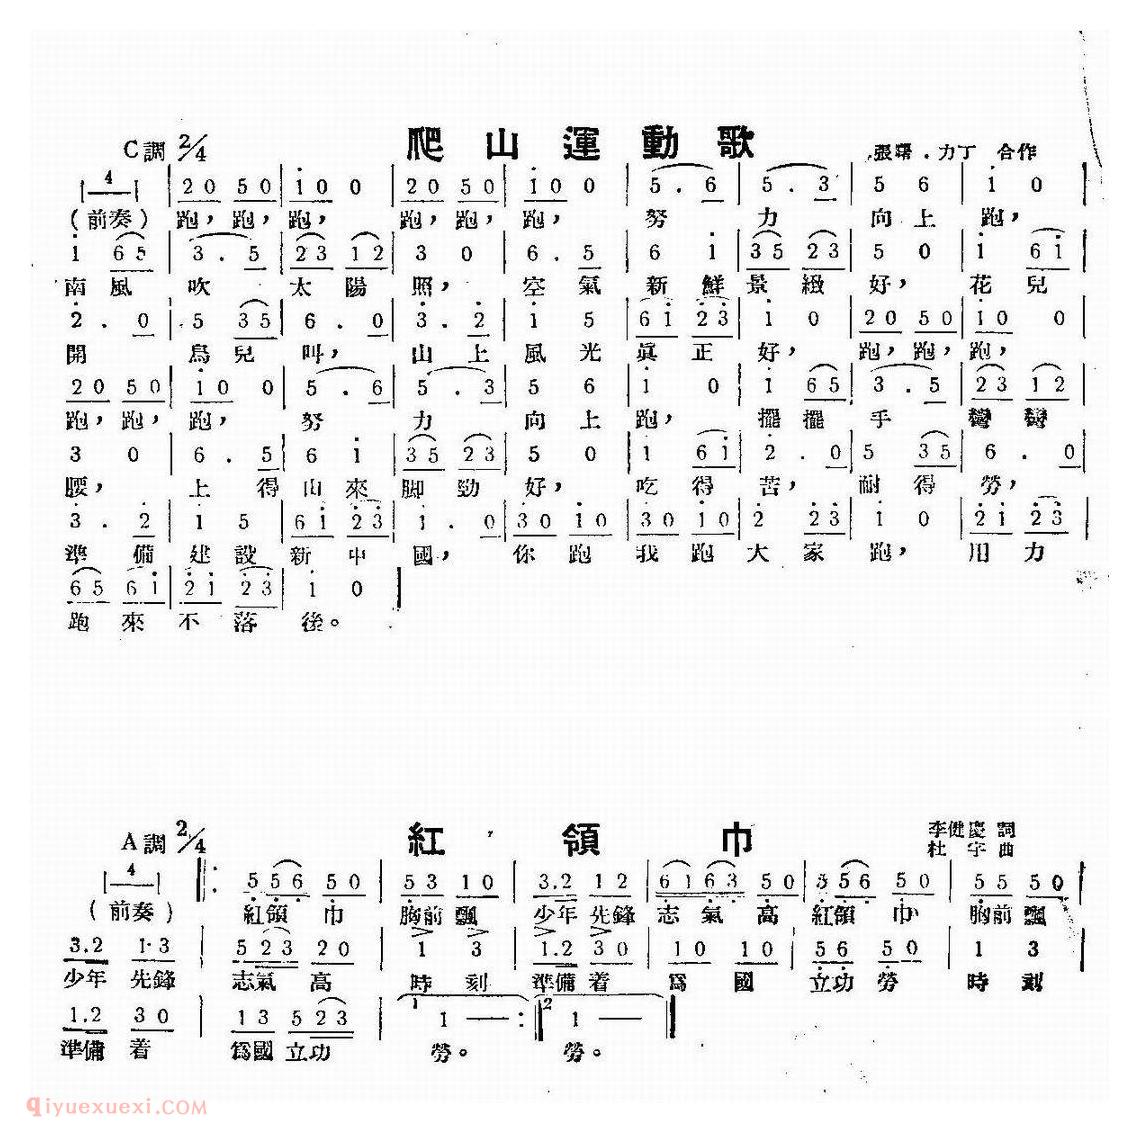 爬山運動歌
C調 2/4
張曙．力丁 合作
4 | 2 0 5 0 | 1 0 0 | 2 0 5 0 | 1 0 0 | 5 . 6 | 5 . 3 | 5 6 | 1 0 |
(前奏) 跑，跑，跑， 跑，跑，跑， 努 力 向上跑，
1 6 5 | 3 . 5 | 2 3 1 2 | 3 0 | 6 . 5 | 6 1 | 3 5 2 3 | 5 0 | 1 6 1 |
南風 吹 太陽 照， 空氣 新鮮景緻 好， 花兒
2 . 0 | 5 3 5 | 6 . 0 | 3 . 2 | 1 5 | 6 1 2 3 | 1 0 | 2 0 5 0 | 1 0 0 |
開 鳥兒 叫， 山上 風光 眞正 好， 跑，跑，跑，
2 0 5 0 | 1 0 0 | 5 . 6 | 5 . 3 | 5 6 | 1 0 | 1 6 5 | 3 . 5 | 2 3 1 2 |
跑，跑，跑， 努 力 向上 跑， 擺擺 手 彎彎
3 0 | 6 . 5 | 6 1 | 3 5 2 3 | 5 0 | 1 6 1 | 2 . 0 | 5 3 5 | 6 . 0 |
腰， 上得 山來 脚勁 好， 吃得 苦， 耐得 勞，
3 . 2 | 1 5 | 6 1 2 3 | 1 . 0 | 3 0 1 0 | 3 0 1 0 | 2 2 3 | 1 0 | 2 1 2 3 |
準備 建設 新中 國， 你跑 我跑 大家 跑， 用力
6 5 6 1 | 2 1 2 3 | 1 0 |
跑來 不落 後。
紅領巾
A調 2/4
李健慶 詞
杜宇 曲
4 |: 5 5 6 5 0 | 5 3 1 0 | 3.2 1 2 | 6 1 6 3 5 0 | 5 5 6 5 0 | 5 5 5 0 |
(前奏) 紅領 巾 胸前飄 少年 先鋒 志氣高 紅領 巾 胸前 飄
3.2 1·3 | 5 2 3 2 0 | 1 3 | 1.2 3 0 | 1 0 1 0 | 5 6 5 0 | 1 3 |
少年 先鋒 志氣 高 時刻 準備着 爲 國 立功 勞 時刻
1.2 3 0 | 1 3 5 2 3 | 1 1 — :| 2 1 — |
準備 着 爲國立功 勞。 勞。
qiyuexuexi.COM